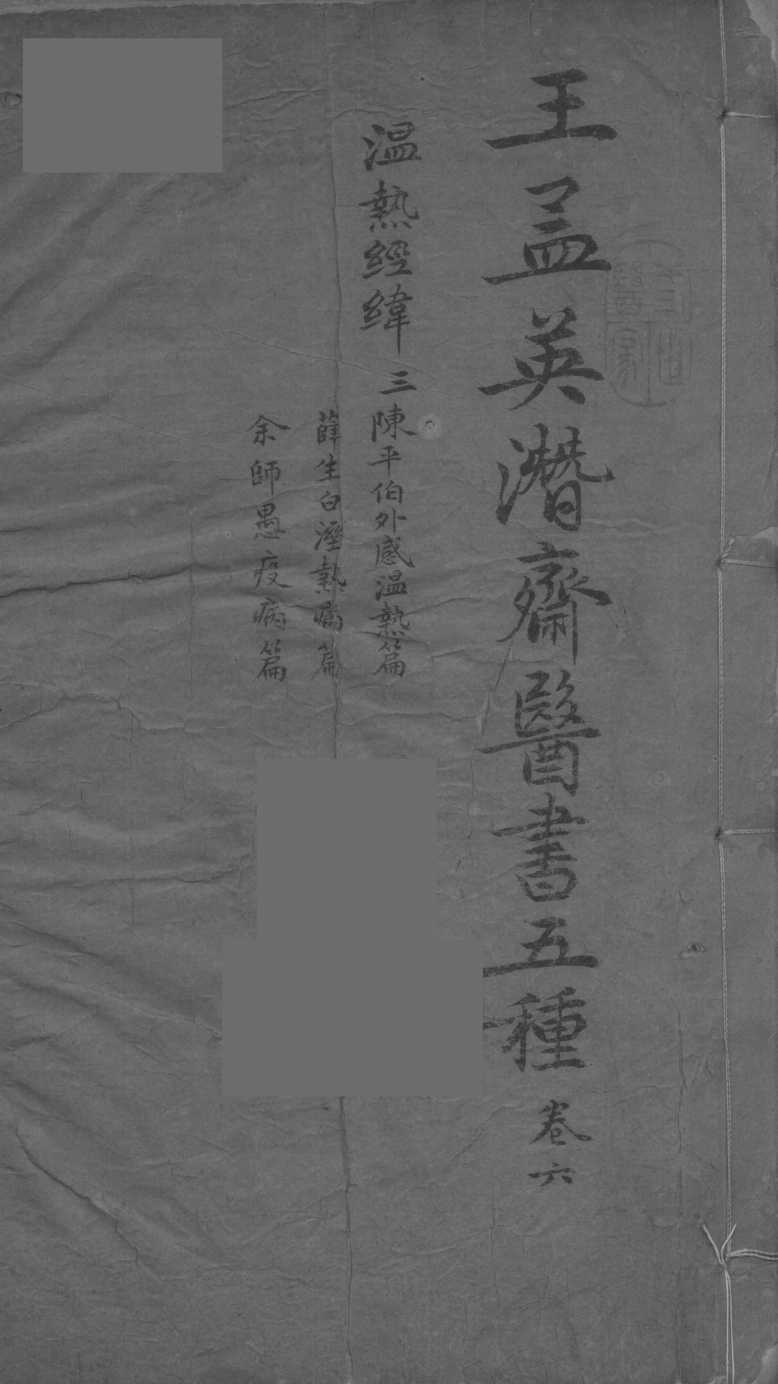 王孟英潛齋醫書五種 卷六
温熱經緯 三 陳平伯外感温熱篇
薛生白溼熱病篇
余師愚疫病篇